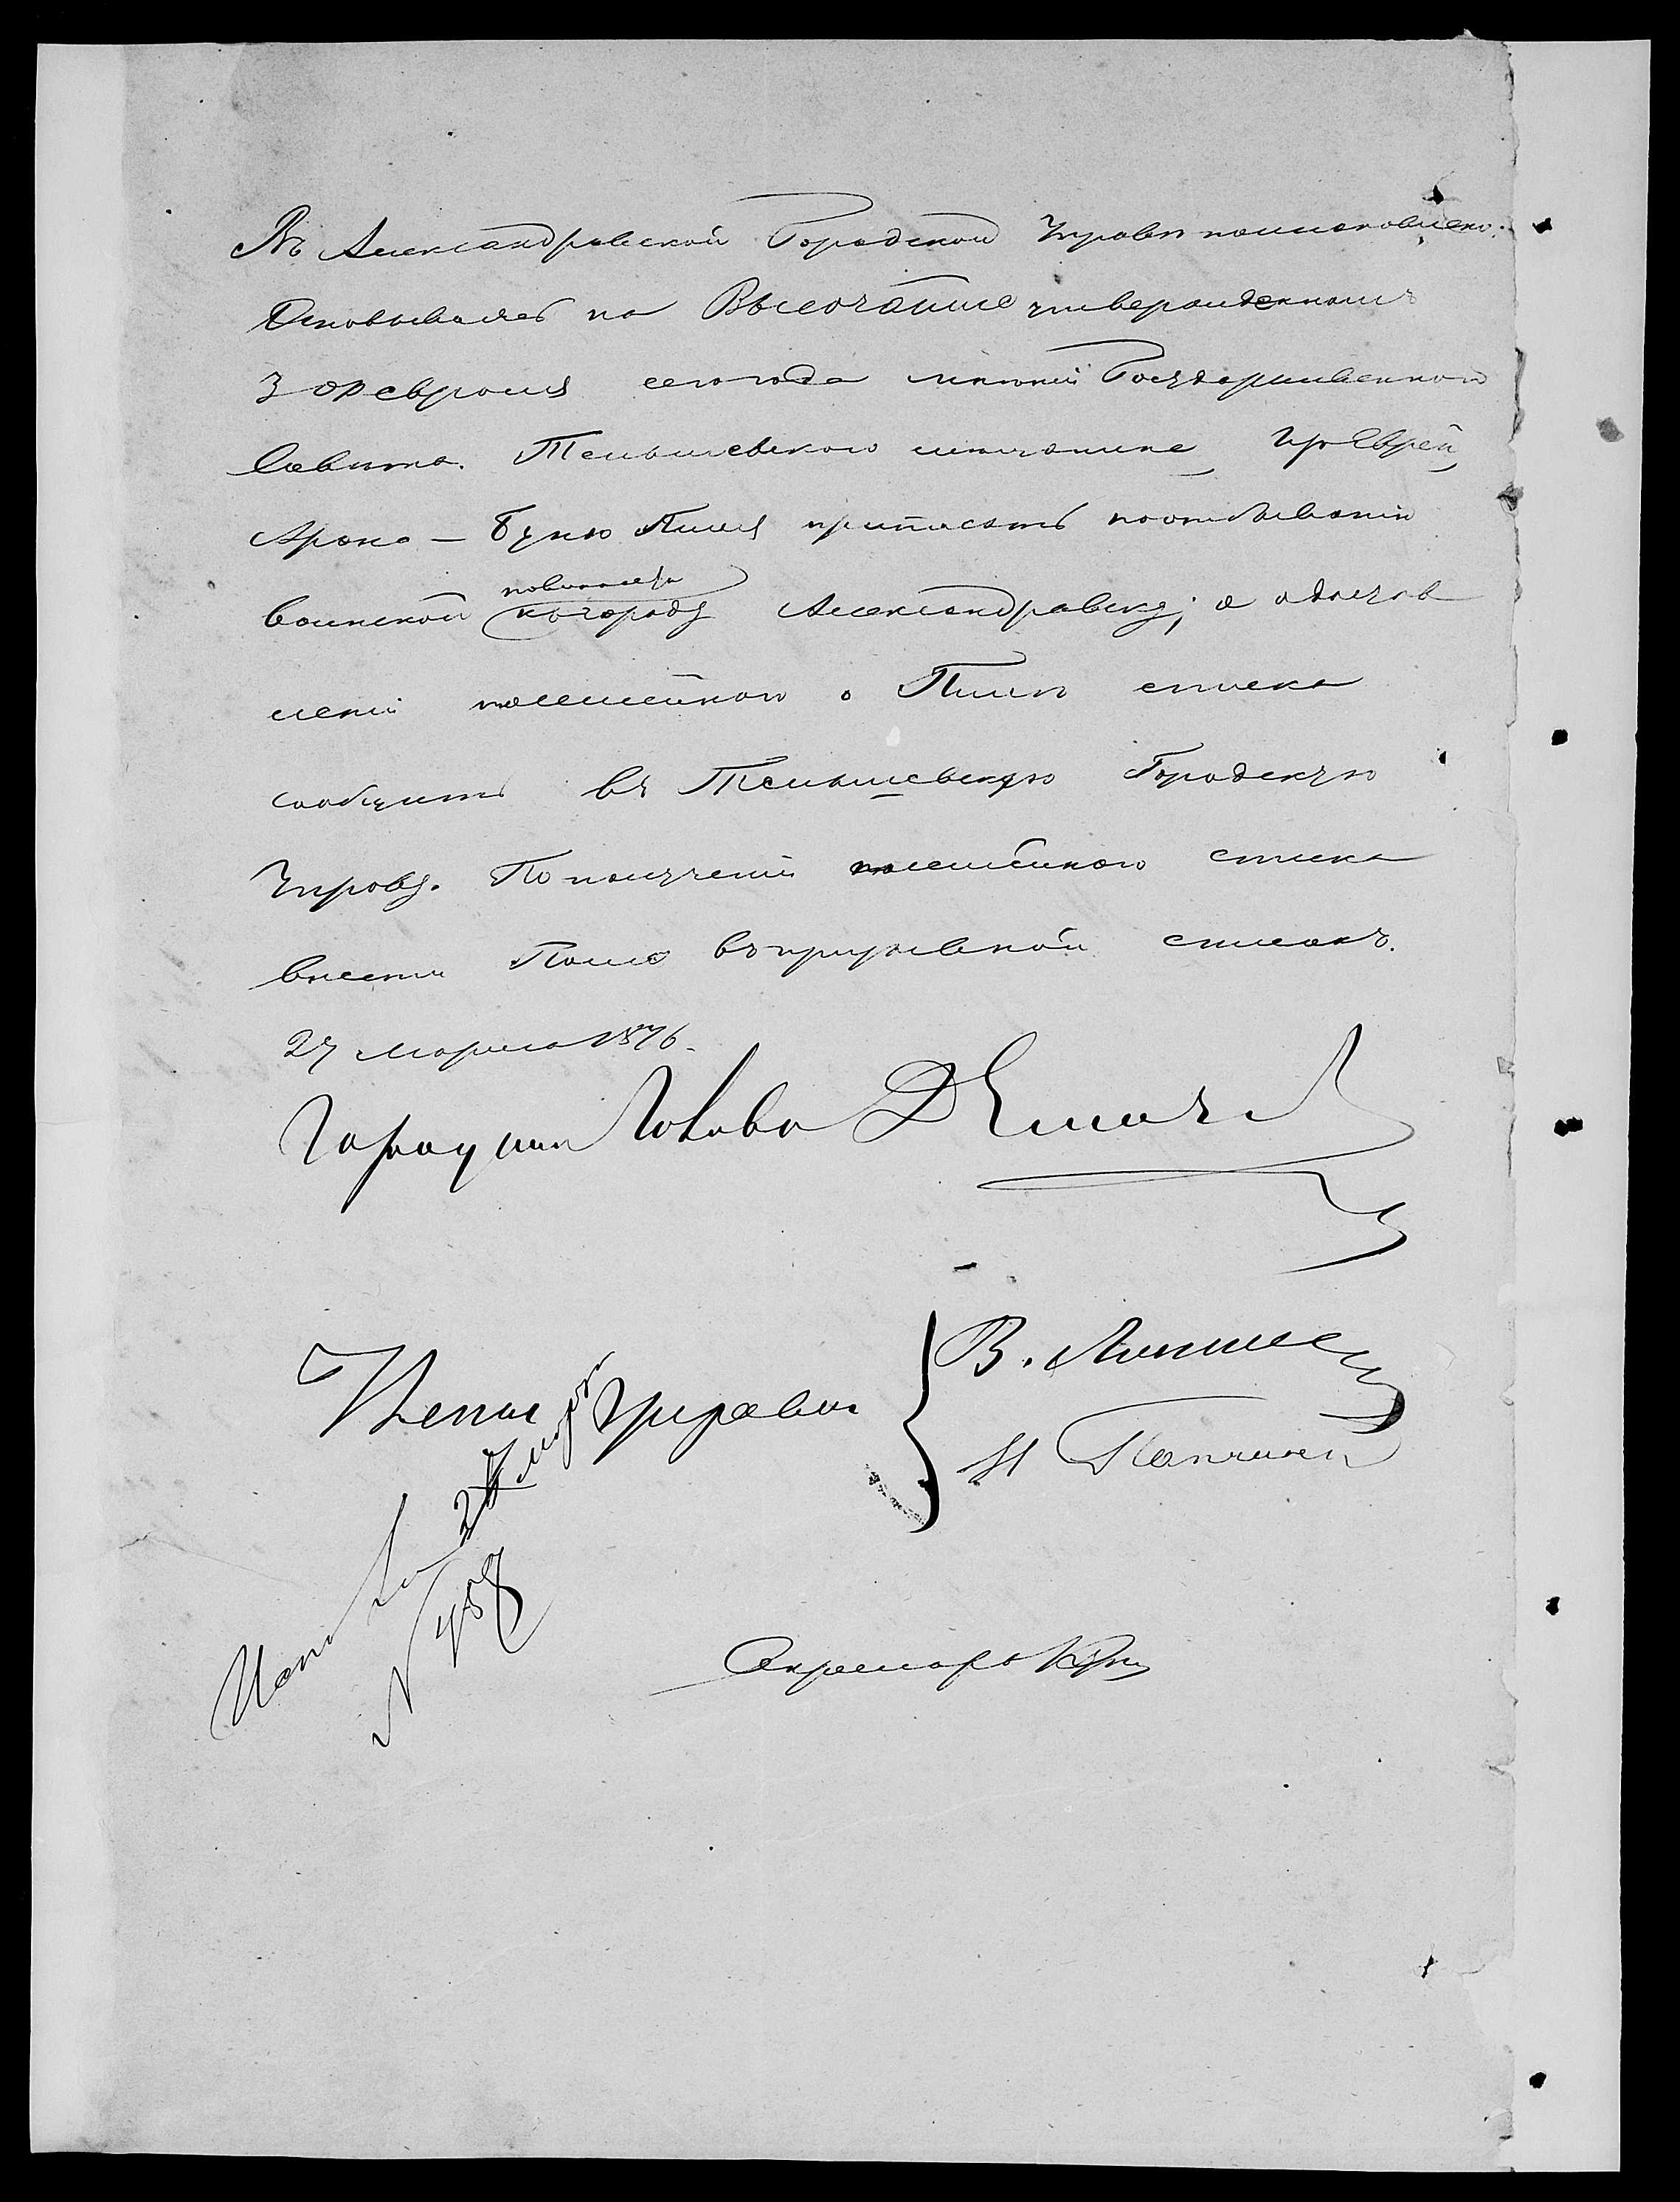 Въ Александровской Городской Управѣ постановлено:
Основываясь на Высочайше утвержденномъ
3 Февраля сего года мнѣніи Государственнаго
Совѣта. Тельшевскаго мѣщанина, изъ Еврей,
Арона – Буню Пиля приписать по отбыванію
повинности
воинской къ городу Александровску; о достав
леніи посемейнаго о Пилѣ списка
сообщить въ Тельшевскую Городскую
Управу. По полученіи посемейнаго списка
внести Пиля въ призывной списокъ.
27 марта 1876.
Городской Голова Д
Члены Управы
В.
И
Исп 27 марта
N 458
Секретарь